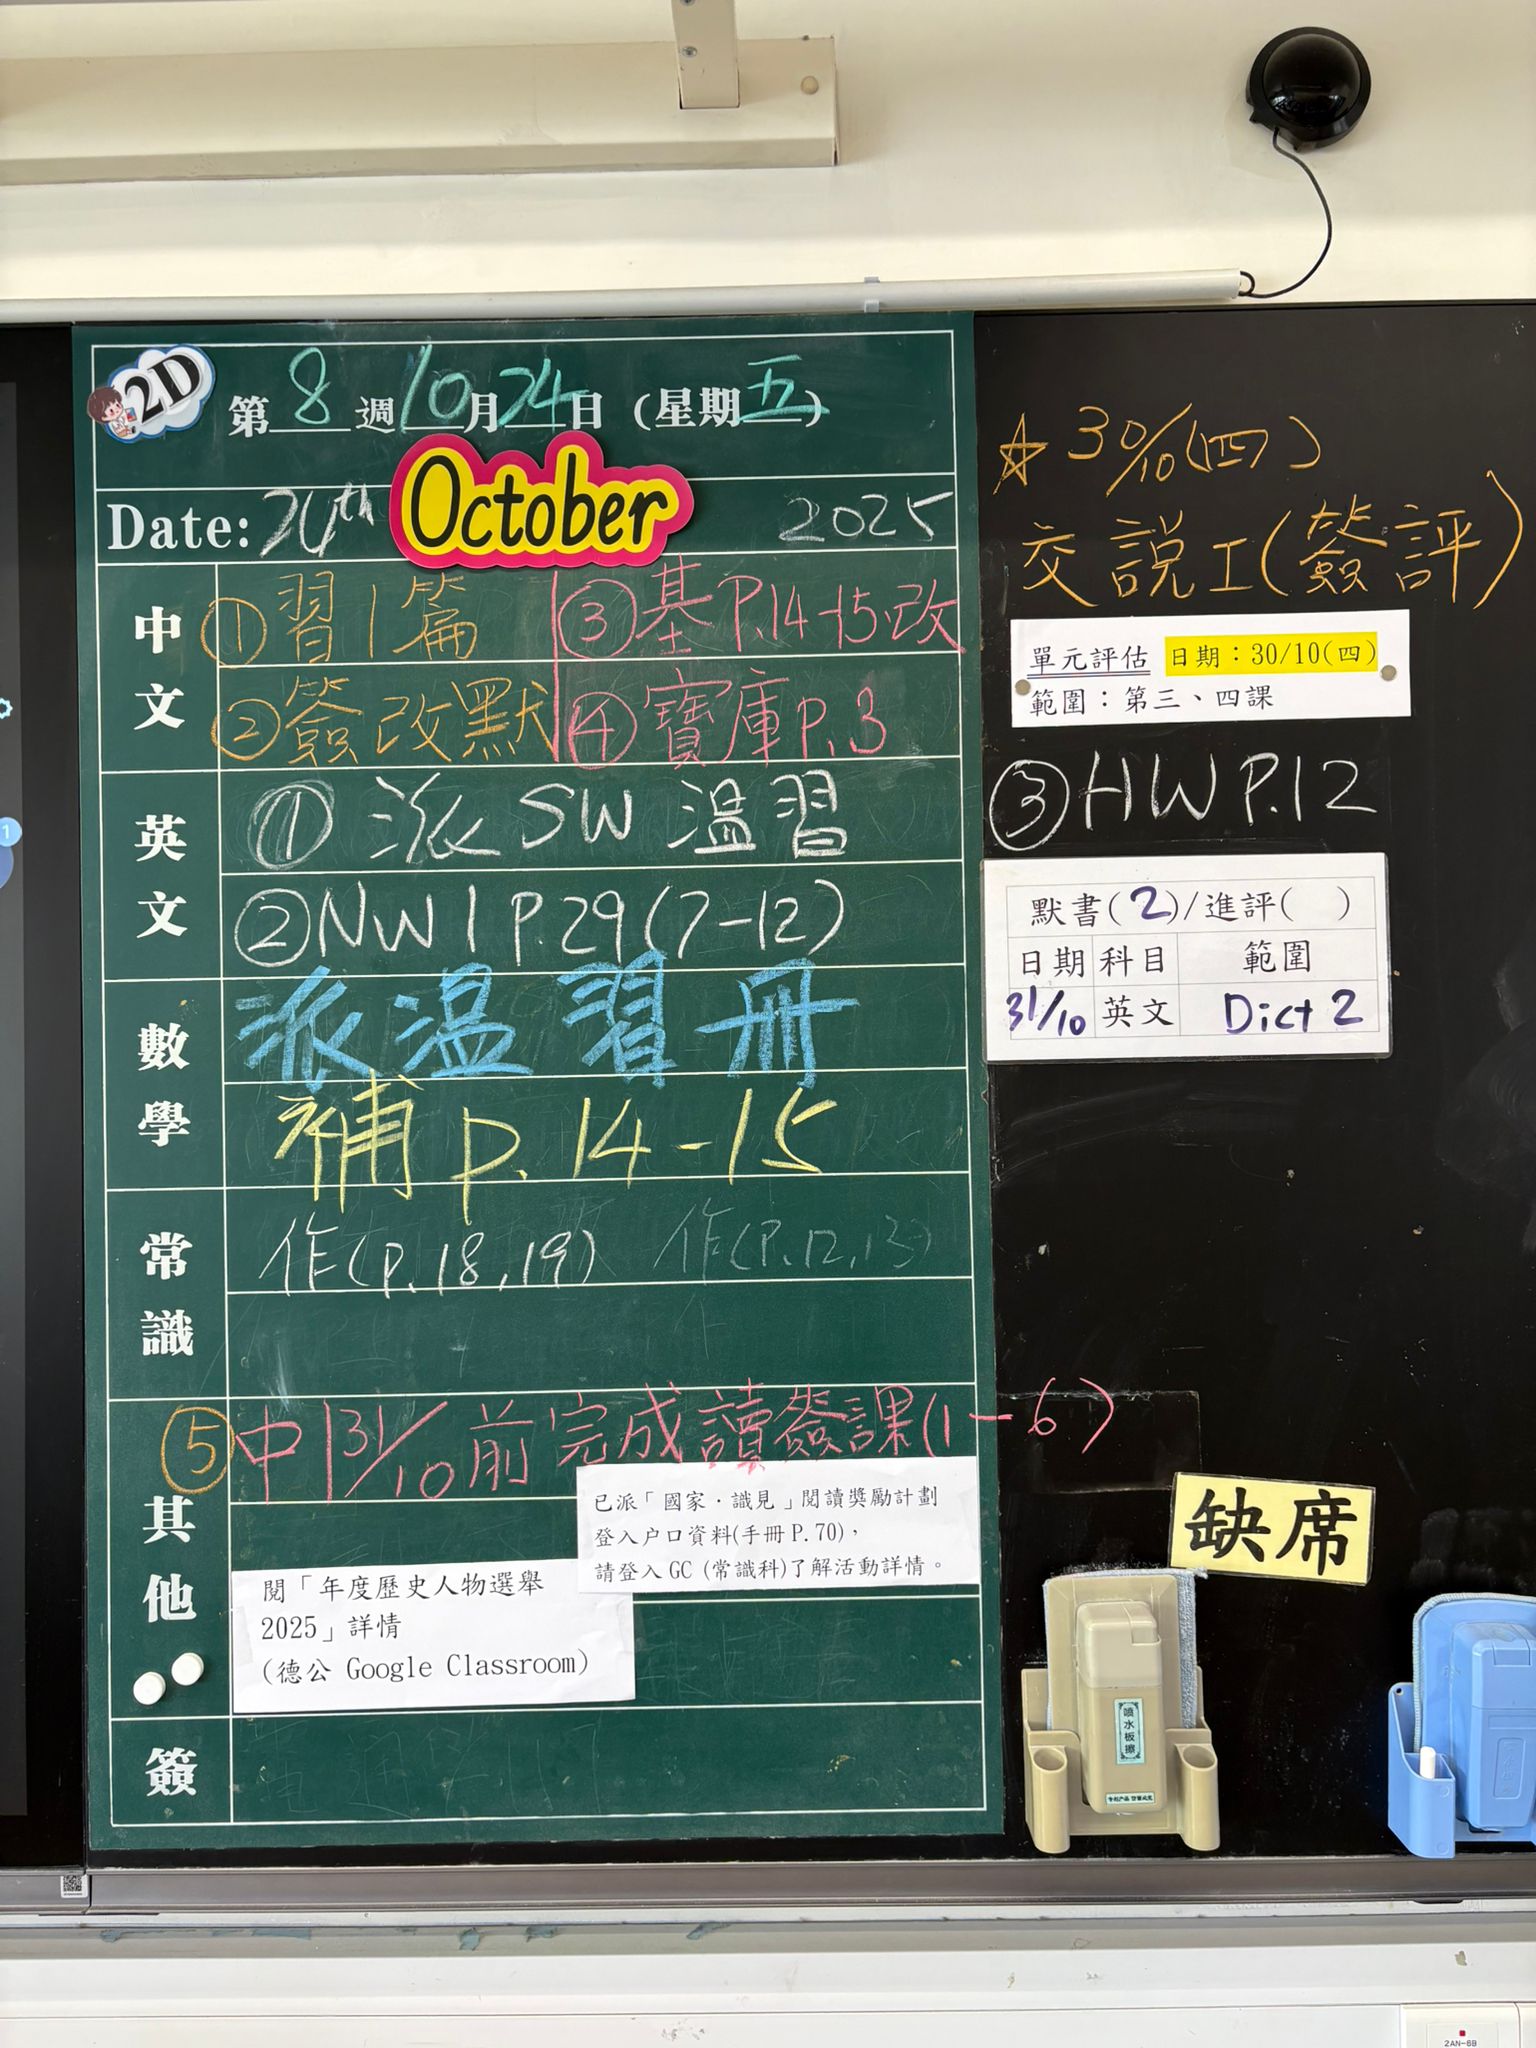 2D
第 8 週 10 月 24 日 (星期 五)
Date: 24th October 2025
中文
① 習1篇
② 簽改默
③ 基 P.14-15改
④ 寶庫 P.3
英文
① 派 SW 溫習
② NW1 P.29 (7-12)
數學
派溫習冊
補 p.14-15
常識
作(P.18,19) 作(P.12,13)
其他
⑤ 中 31/10 前完成讀簽課(1-6)
已派「國家．識見」閱讀獎勵計劃
登入户口資料(手冊 P.70)，
請登入 GC (常識科)了解活動詳情。
閱「年度歷史人物選舉
2025」詳情
(德公 Google Classroom)
簽
☆ 30/10(四)
交說工(簽評)
單元評估 日期：30/10(四)
範圍：第三、四課
③ HW P.12
默書(2)/進評( )
日期 科目 範圍
31/10 英文 Dict 2
缺席
噴水板擦
2AN-6B